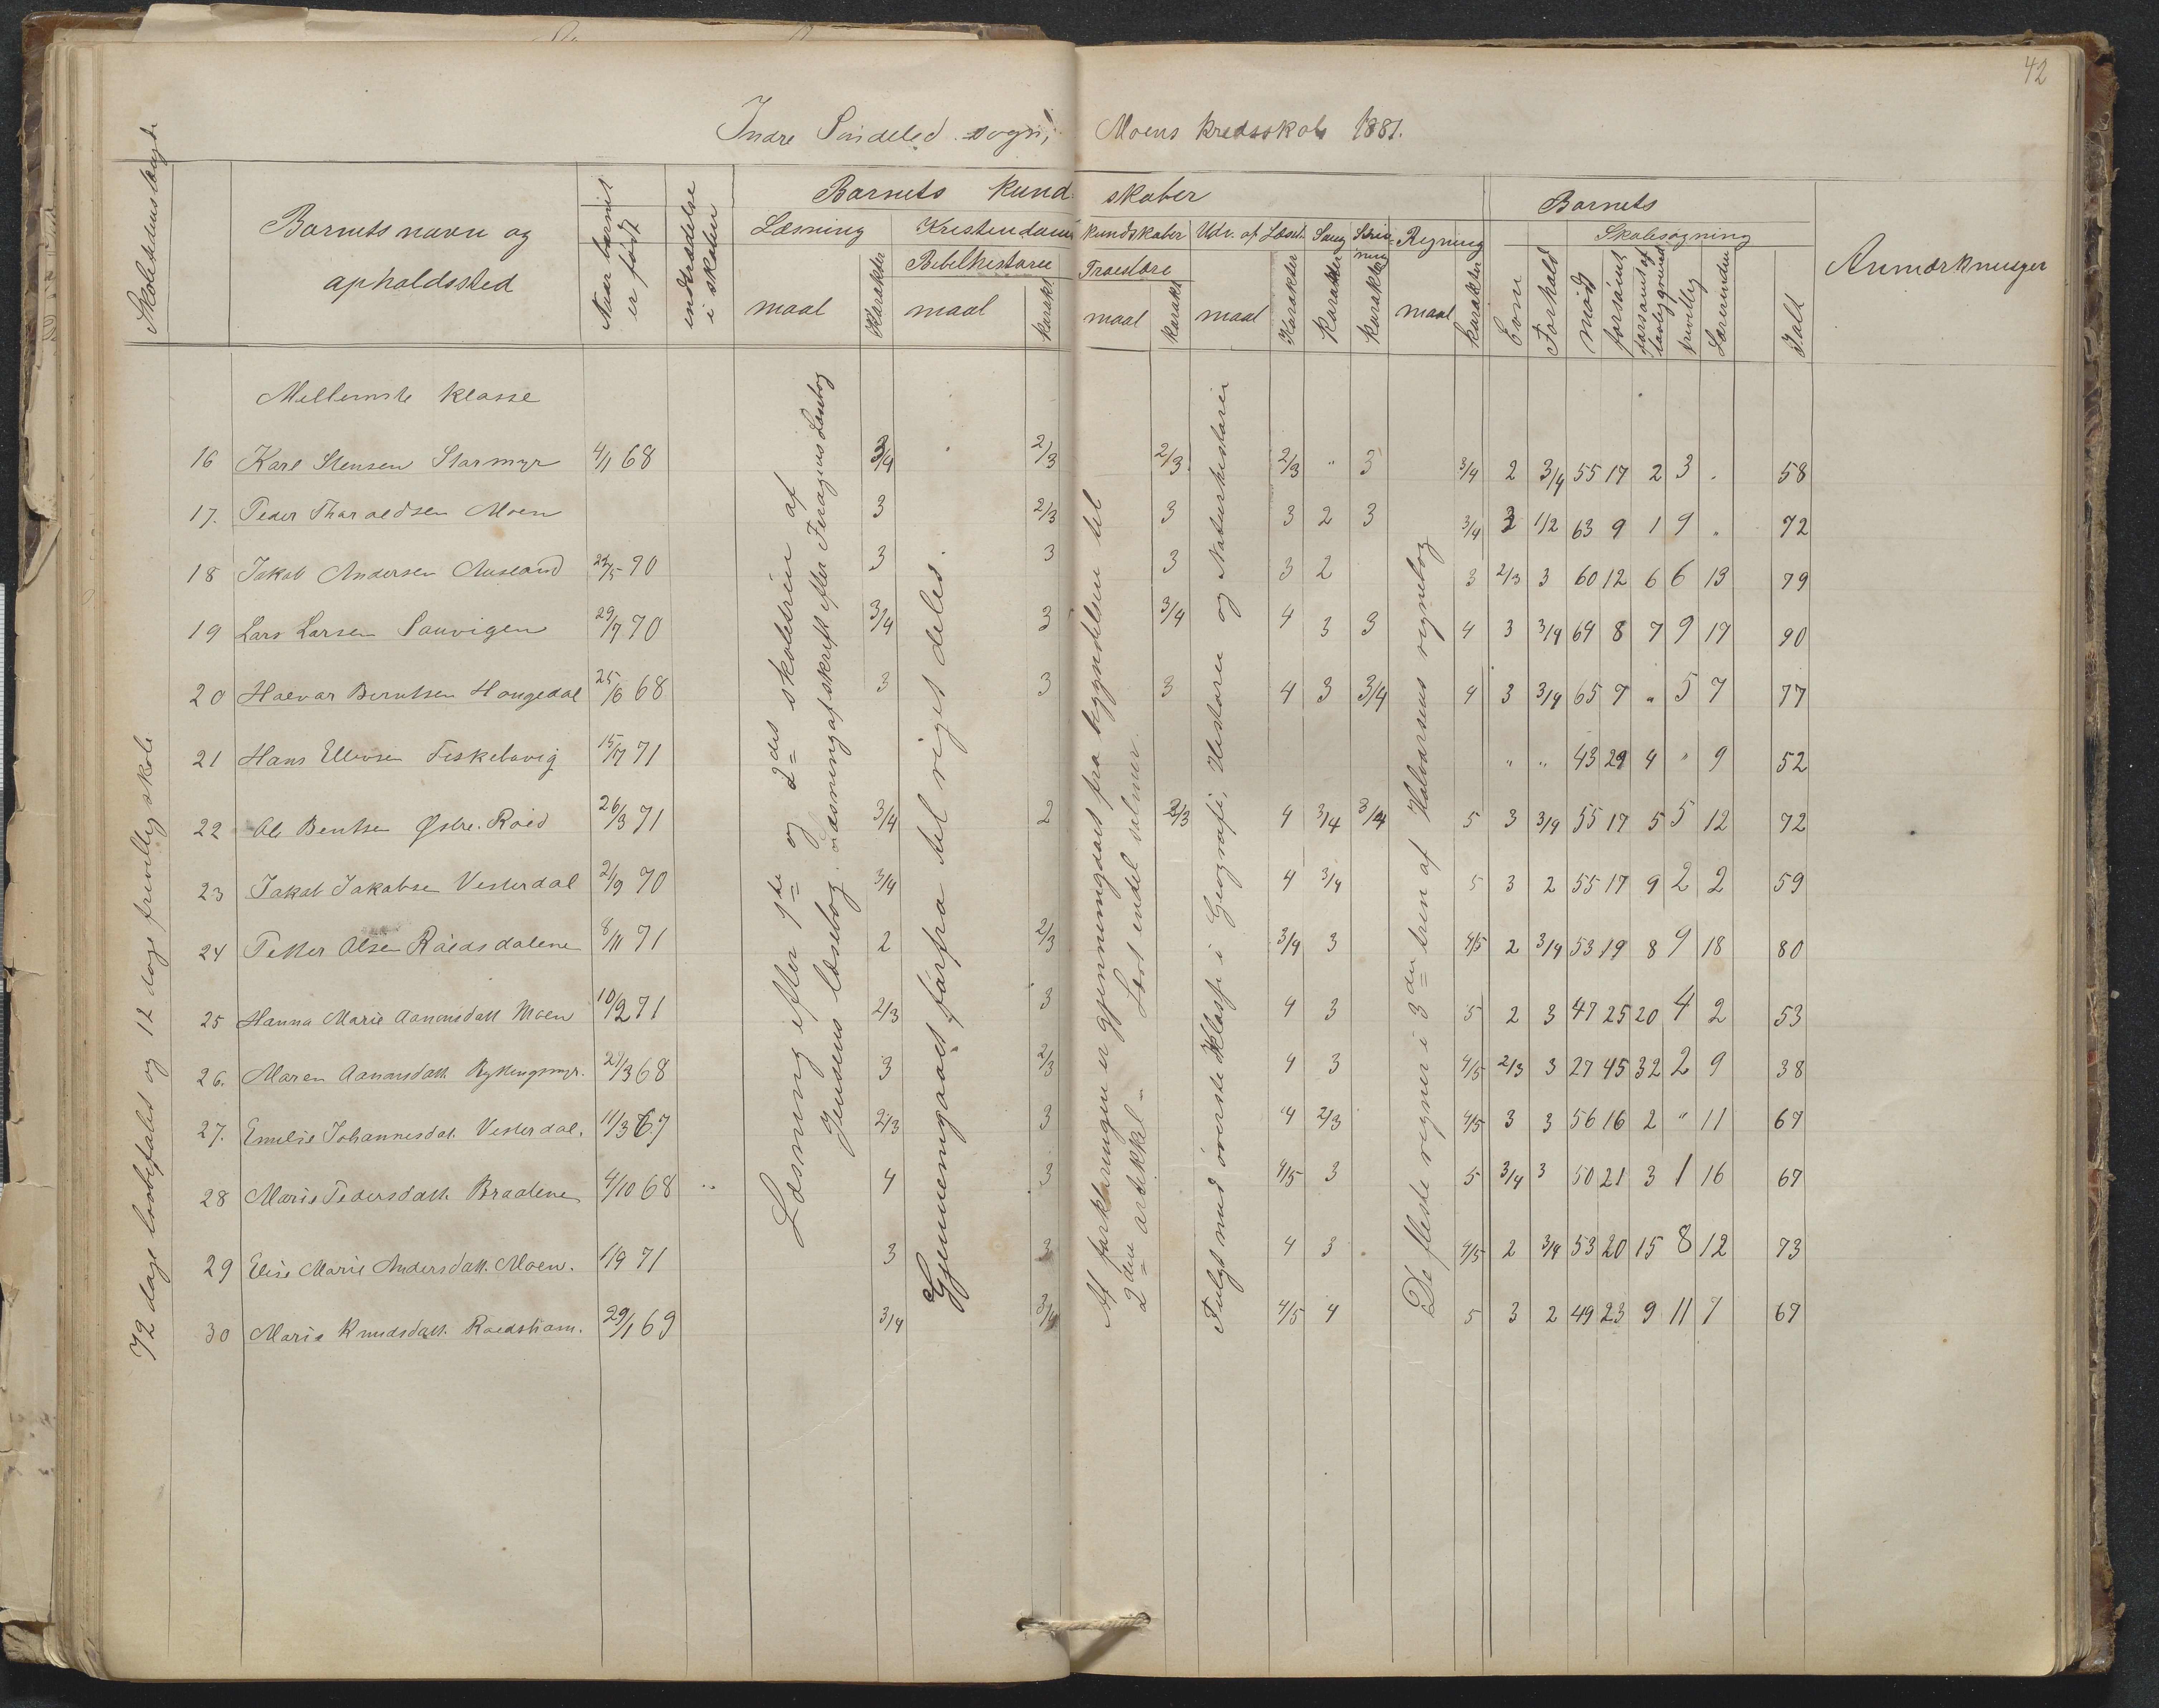 42
Indre Søndeled sogn, Moens kredsskole 1881.
Skoletidens længde
Barnets navn og opholdssted
Naar barnet er født
indtrædelse i skolen
Barnets kundskaber
Læsning
Kristendomskundskaber
Udv. af Læseb.
Sang
Skrivning
Regning
Barnets
Skolesøgning
Anmærkninger
Bibelhistorie
Troeslære
maal
Karakter
maal
karakt
maal
karakt
maal
Karakter
Karakter
Karakter
maal
karakter
Evne
Forhold
mødt
forsømt
forsømt af lovlig grund
frivillig
Lærerinden
Ialt
Mellemste klasse
16 Karl Stensen Starmyr 4/1 68 3/4 2/3 2/3 2/3 " 3 3/4 2 3/4 55 17 2 3 . 58
17. Peder Tharaldsen Moen 3 2/3 3 3 2 3 3/4 3 1/2 63 9 1 9 " 72
18 Jakob Andersen Ausland 24/5 70 3 3 3 3 2 3 2/3 3 60 12 6 6 13 79
19 Lars Larsen Sauvigen 29/7 70 3/4 3 3/4 4 3 3 4 3 3/4 64 8 7 9 17 90
20 Halvar Berntsen Hougedal 25/6 68 3 3 3 4 3 3/4 4 3 3/4 65 7 " 5 7 77
21 Hans Ellevsen Fiskeløvig 15/7 71 " " 43 29 4 " 9 52
22 Ole Bentsen Østre. Røed 26/3 71 3/4 2 2/3 4 3/4 3/4 5 3 3/4 55 17 5 5 12 72
23 Jakob Jakobsen Vesterdal 21/9 70 3/4 4 3/4 5 3 2 55 17 9 2 2 59
24 Petter Olsen Røedsdalene 8/11 71 2 2/3 3/4 3 4/5 2 3/4 53 19 8 9 18 80
25 Hanna Marie Aanonsdatt Moen 10/2 71 2/3 3 4 3 5 2 3 47 25 20 4 2 53
26. Maren Aanonsdatt. Rykingsmyr. 21/3 68 3 2/3 4 3 4/5 2/3 3 27 45 32 2 9 38
27. Emilie Johannesdat. Vesterdal. 11/3 67 2/3 3 4 2/3 4/5 3 3 56 16 2 " 11 67
28 Marie Pedersdatt. Braatene 4/10 68 " 4 3 4/5 3 5 3/4 3 50 21 3 1 16 67
29 Elise Marie Andersdatt. Moen. 1/9 71 3 3 4 3 4/5 2 3/4 53 20 15 8 12 73
30 Marie Knudsdatt. Roedsham. 29/1 69 3/4 3/4 4/5 4 5 3 2 49 23 9 11 7 67
72 dage lovbefalet og 12 dage frivillig skole
Læsning efter 1ste og 2det skoletrin af
Jensens læsebog. Læsning af skrift efter Feragens Læsebog
Gjennemgaaet forfra til riget deles.
Af forklaringen er gjennemgaaet fra begyndelsen til
2den artikkel - Lært endel salmer.
Fulgt med øverste klasse i Geografi, Historie og Naturhistorie
De fleste regner i 3die trin af Halvorsens regnebog